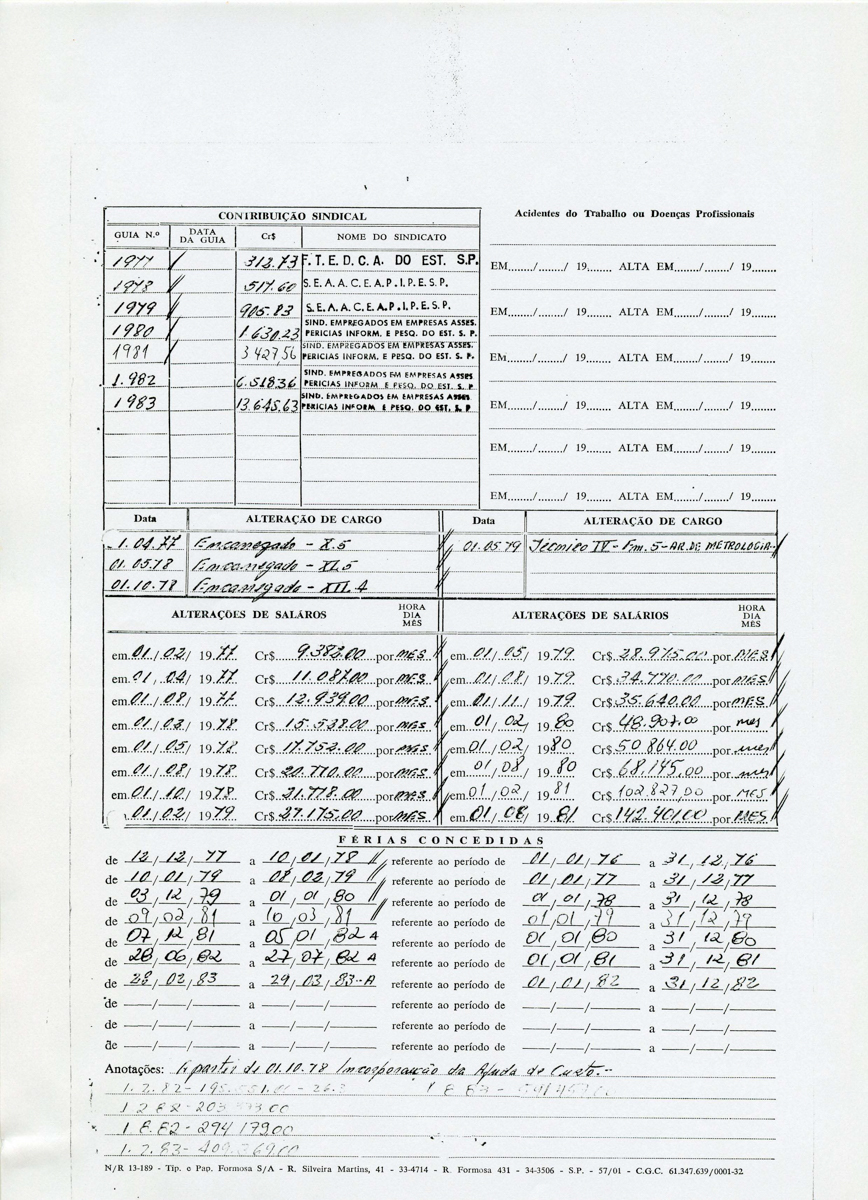 CONTRIBUIÇÃO SINDICAL
GUIA N.º DATA DA GUIA Cr$ NOME DO SINDICATO
1977 312.73 F.T.E.D.C.A. DO EST. S.P.
1978 517.60 S.E.A.A.C.E.A.P.I.P.E.S.P.
1979 905.83 S.E.A.A.C.E.A.P.I.P.E.S.P.
1980 1.630.23 SIND. EMPREGADOS EM EMPRESAS ASSES. PERICIAS INFORM. E PESQ. DO EST. S. P.
1981 3427,56 SIND. EMPREGADOS EM EMPRESAS ASSES. PERICIAS INFORM. E PESQ. DO EST. S. P.
1.982 6.518.36 SIND. EMPREGADOS EM EMPRESAS ASSES PERICIAS INFORM. E PESQ. DO EST. S. P
1983 13.645.63 SIND. EMPREGADOS EM EMPRESAS ASSES PERICIAS INFORM E PESQ. DO EST. S. P
Acidentes do Trabalho ou Doenças Profissionais
EM......./......./ 19....... ALTA EM......./......./ 19........
EM......./......./ 19....... ALTA EM......./......./ 19........
EM......./......./ 19....... ALTA EM......./......./ 19........
EM......./......./ 19....... ALTA EM......./......./ 19........
EM......./......./ 19....... ALTA EM......./......./ 19........
EM......./......./ 19....... ALTA EM......./......./ 19........
Data ALTERAÇÃO DE CARGO Data ALTERAÇÃO DE CARGO
1.04.77 Encarregado - X.5 01.05.79 Técnico IV - Em. 5 - AR. DE METROLOGIA
01.05.78 Encarregado - XI.5
01.10.78 Encarregado - XII.4
ALTERAÇÕES DE SALÁROS HORA DIA MÊS ALTERAÇÕES DE SALÁRIOS HORA DIA MÊS
em 01/02/ 1977 Cr$ 9.382.00 por MES em 01/05/ 1979 Cr$ 28.975.00 por MES
em 01/04/ 1977 Cr$ 11.087.00 por MES em 01/08/ 1979 Cr$ 34.770.00 por MES
em 01/08/ 1977 Cr$ 12.939.00 por MES em 01/11/ 1979 Cr$ 35.640.00 por MES
em 01/03/ 1978 Cr$ 15.538.00 por MES em 01/02 1980 Cr$ 48.907.00 por mes
em 01/05/ 1978 Cr$ 17.752.00 por MES em 01/02 1980 Cr$ 50.864.00 por mes
em 01/08/ 1978 Cr$ 20.770.00 por MES em 01/08 1980 Cr$ 68.145,00 por mes
em 01/10/ 1978 Cr$ 21.778.00 por MES em 01/02 1981 Cr$ 102.827,00 por MES
01/02/ 1979 Cr$ 27.175.00 por MES em 01/08/ 1981 Cr$ 142.401.00 por MES
FÉRIAS CONCEDIDAS
de 12/12/77 a 10/01/78 referente ao período de 01/01/76 a 31/12/76
de 10/01/79 a 08/02/79 referente ao período de 01/01/77 a 31/12/77
de 03/12/79 a 01/01/80 referente ao período de 01/01/78 a 31/12/78
de 09/02/81 a 10/03/81 referente ao período de 01/01/79 a 31/12/79
de 07/12/81 a 05/01/82 A referente ao período de 01/01/80 a 31/12/80
de 28/06/82 a 27/07/82 A referente ao período de 01/01/81 a 31/12/81
de 28/02/83 a 29/03/83-A referente ao período de 01/01/82 a 31/12/82
de —/—/— a —/—/— referente ao período de —/—/— a —/—/—
de —/—/— a —/—/— referente ao período de —/—/— a —/—/—
de —/—/— a —/—/— referente ao período de —/—/— a —/—/—
Anotações: A partir de 01.10.78 Incorporação da Ajuda de Custo.-
1.2.82- 1 8 83 -
1 2 82-
1 8.82-294 179.00
1.2.83-
N/R 13-189 - Tip. e Pap. Formosa S/A - R. Silveira Martins, 41 - 33-4714 - R. Formosa 431 - 34-3506 - S.P. - 57/01 - C.G.C. 61.347.639/0001-32